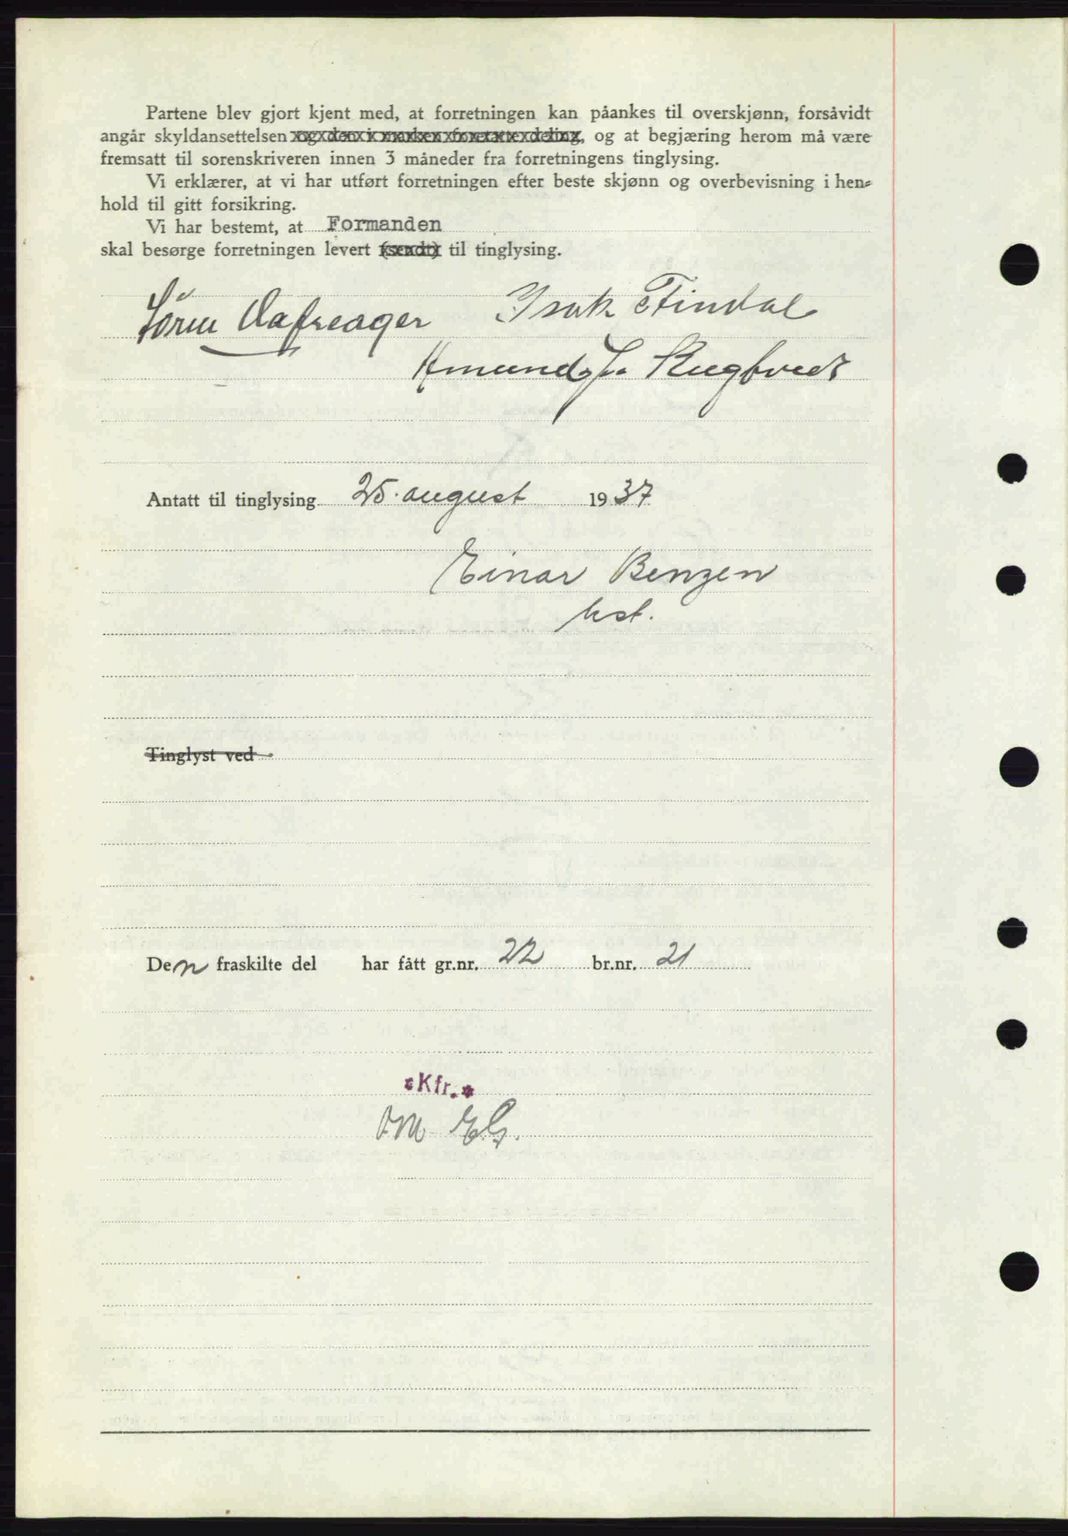 Partene blev gjort kjent med, at forretningen kan påankes til overskjønn, forsåvidt
angår skyldansettelsen og den i marken foretatte deling, og at begjæring herom må være
fremsatt til sorenskriveren innen 3 måneder fra forretningens tinglysing.
Vi erklærer, at vi har utført forretningen efter beste skjønn og overbevisning i hen-
hold til gitt forsikring.
Vi har bestemt, at Formanden
skal besørge forretningen levert (sendt) til tinglysing.
Isak Findal
Amund J.
Antatt til tinglysing 25. august 1937
Einar Benzen
kst.
Tinglyst ved
Den fraskilte del har fått gr.nr. 22 br.nr. 21
*Kfr.*
OM EG.